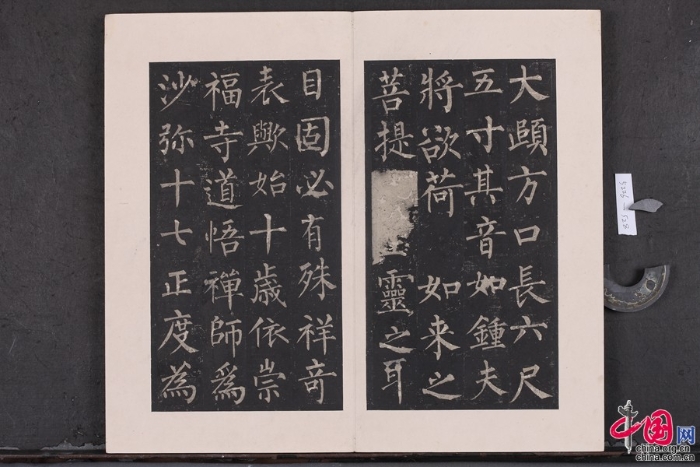 大頤方口長六尺
五寸其音如鍾夫
將欲荷 如来之
菩提 靈之耳
目固必有殊祥奇
表歟始十歳依崇
福寺道悟禪師爲
沙弥十七正度為
中国网
china.org.cn
china.com.cn